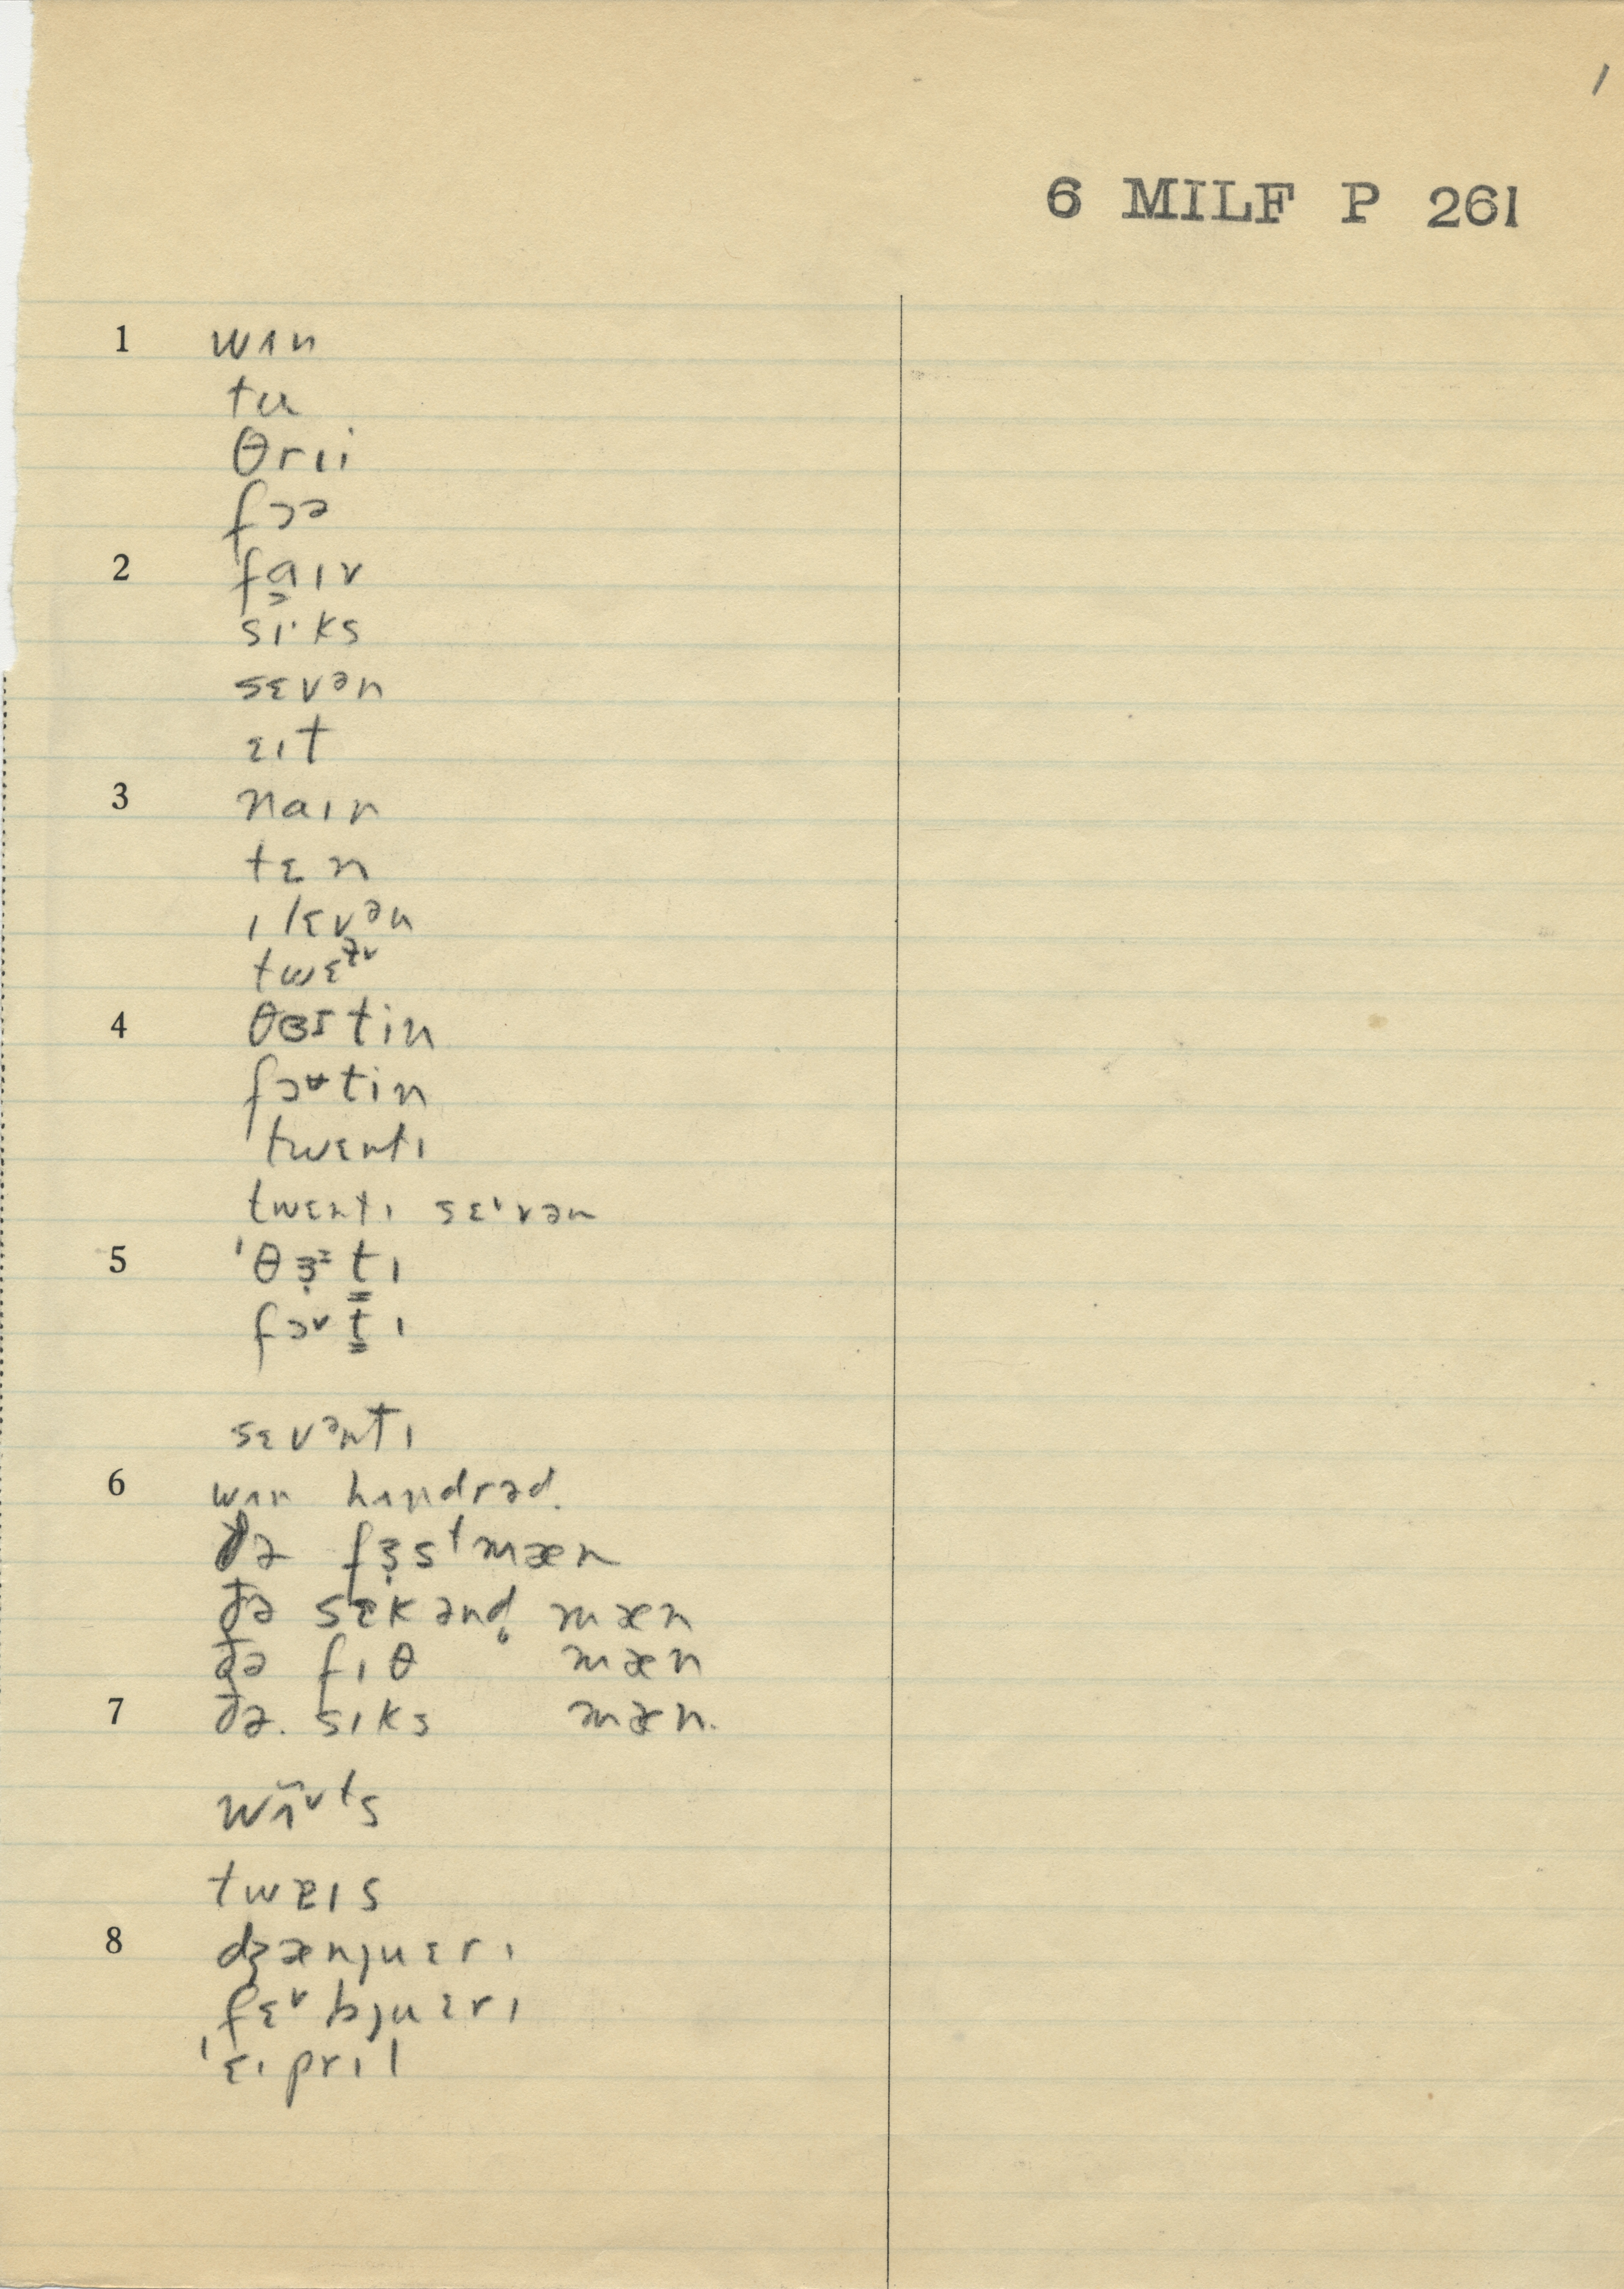 1
6 MILF P 261
1 wʌn
tu
θrɪi
fɔə
2 fa̡ɪv
sɪ·ks
sɛvən
ɛɪt
3 naɪn
tɛn
ɪlɛvən
twɛɫv
4 θɜstin
fɔɚtin
twɛntɪ
twɛntɪ sɛ'vən
5 'θɜ̣tɪ
fɔvtɪ
sɛvəntɪ
6 wʌn hʌndrəd.
ðə fɜ̣stmæn
ðə sɛkənd̥ mæn
ðə fɪθ mæn
7 ðə. sɪks mæn.
wʌ̃ⱽts
twɐɪs
8 dʒænjuɛrɪ
fɛⱽbjuɛrɪ
'ɛɪprɪl